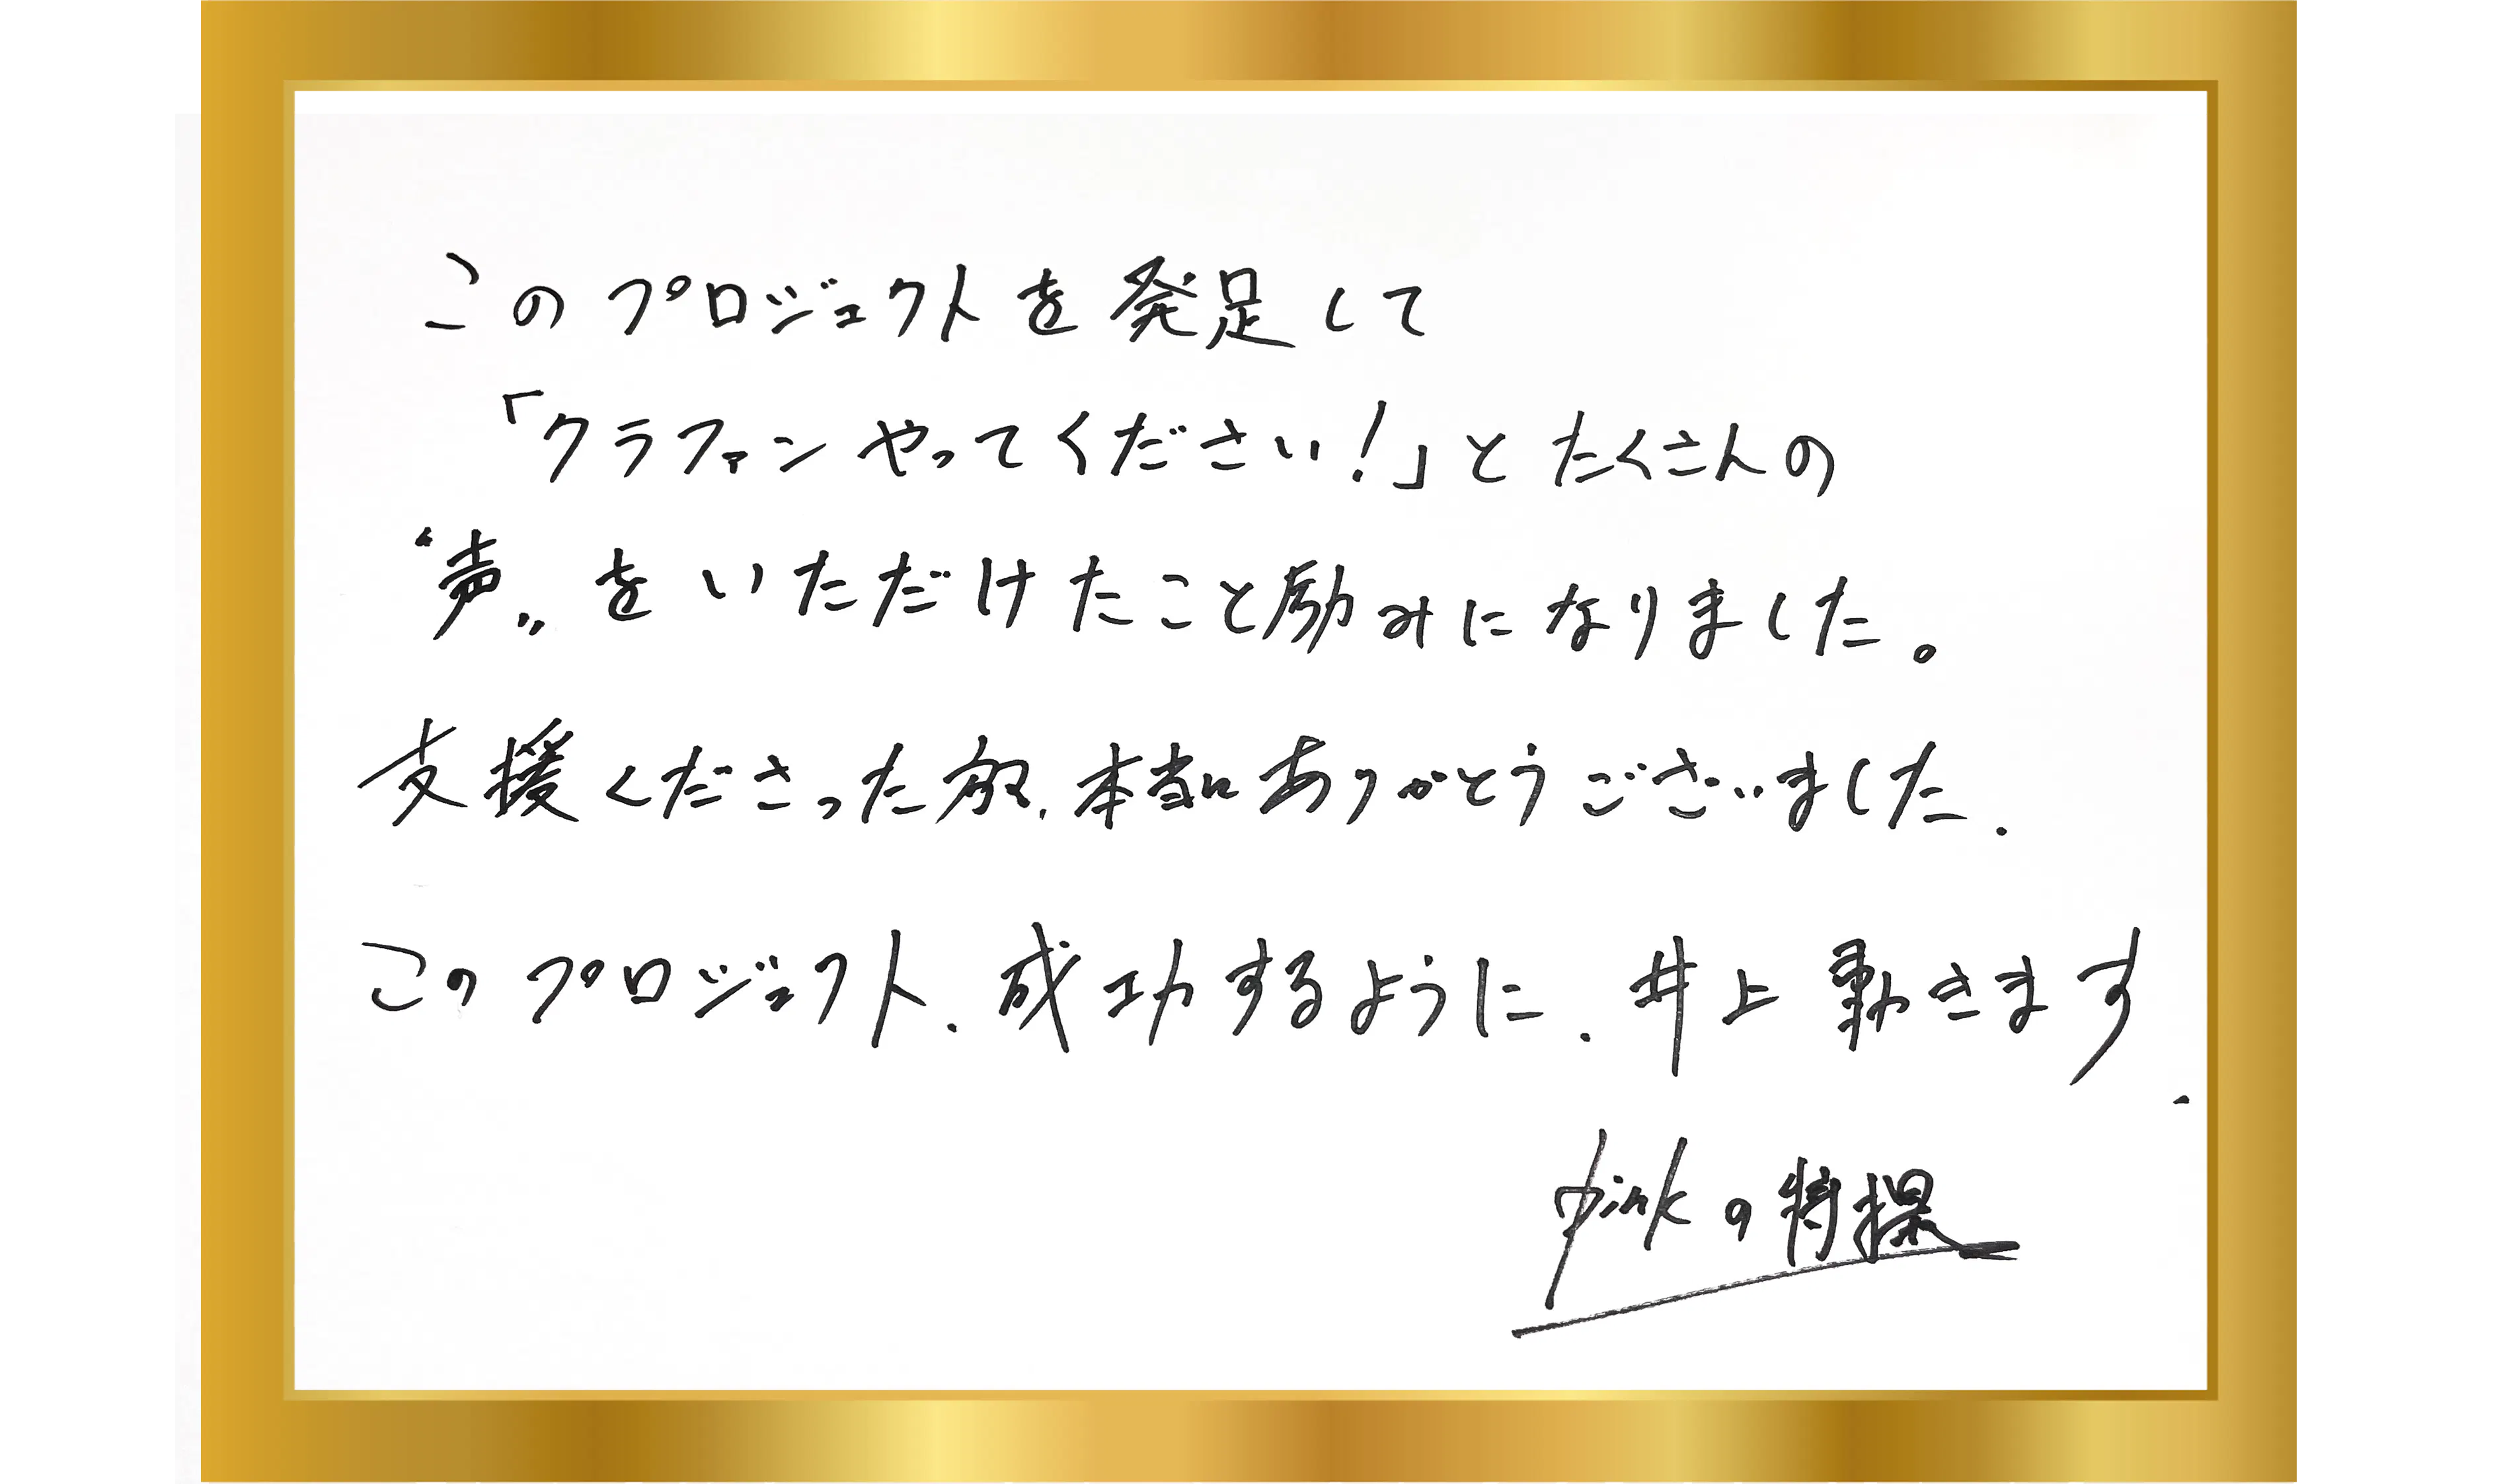 このプロジェクトを発足して
「クラファンやってください!」とたくさんの
“声”をいただけたこと励みになりました。
支援くださった方々、本当にありがとうございました.
このプロジェクト、成功するように、井上動きます.
pinkの特撮